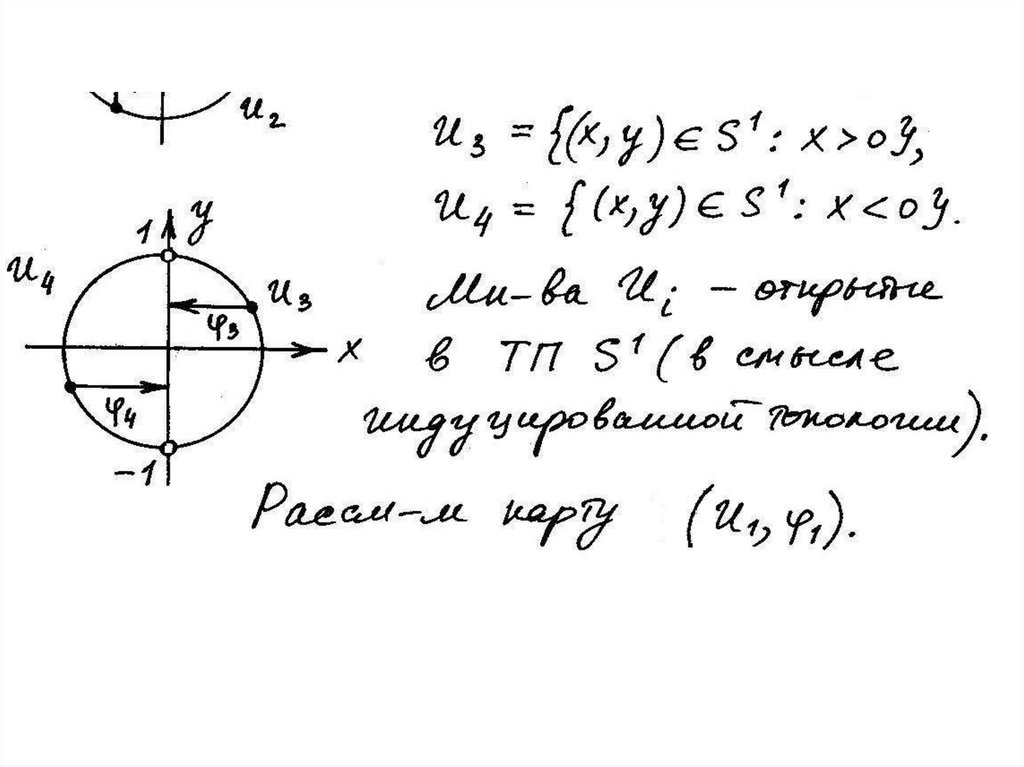 U₂
U₃ = {(x, y) ∈ S¹: x > 0},
U₄ = {(x, y) ∈ S¹: x < 0}.
1 y
U₄
U₃
φ₃
x
φ₄
-1
Мн-ва Uᵢ – открытые
в ТП S¹ (в смысле
индуцированной топологии).
Рассм-м карту (U₁, φ₁).